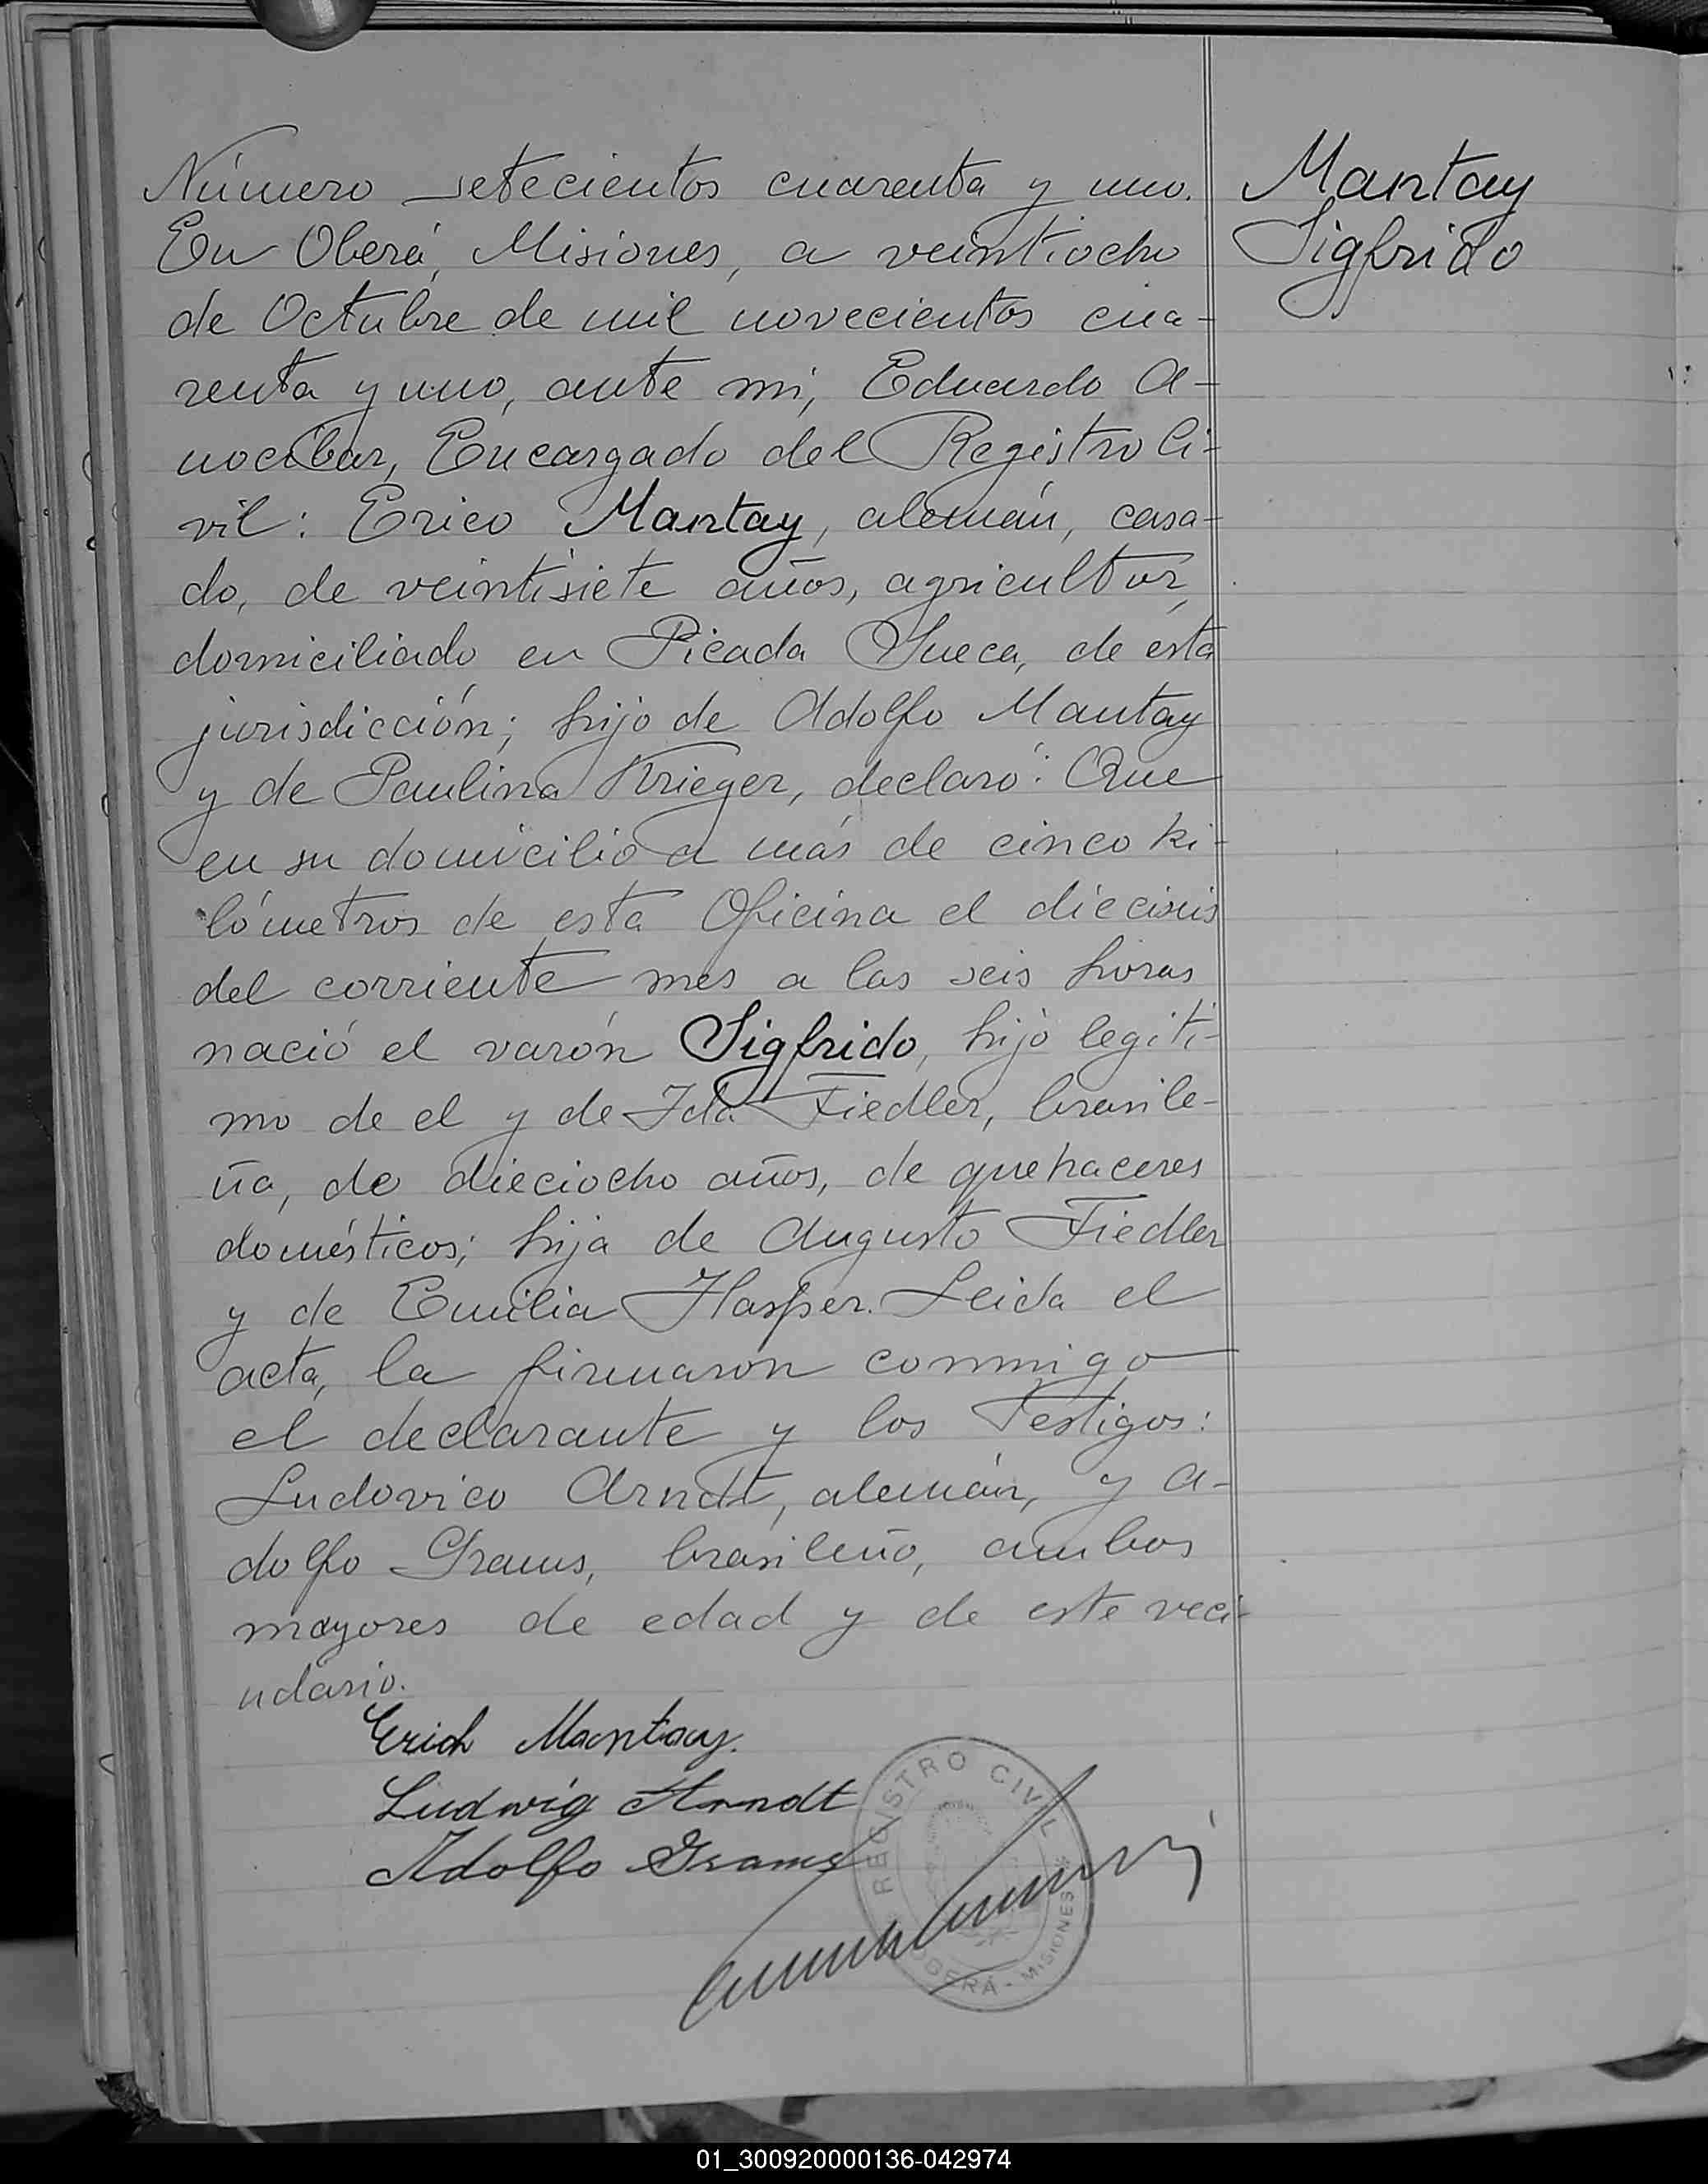 Número setecientos cuarenta y uno.
Mantay
Sigfrido
En Oberá, Misiones, a veintiocho
de Octubre de mil novecientos cua-
renta y uno, ante mi, Eduardo A-
nocibar, Encargado del Registro Ci-
vil: Erico Mantay, alemán, casa-
do, de veintisiete años, agricultor,
domiciliado en Picada Sueca, de esta
jurisdicción; hijo de Adolfo Mantay
y de Paulina Krieger, declaró: Que
en su domicilio a más de cinco ki-
lómetros de esta Oficina el dieciseis
del corriente mes a las seis horas
nació el varón Sigfrido, hijo legíti-
mo de el y de Ida Fiedler, brasile-
ña, de dieciocho años, de quehaceres
domésticos; hija de Augusto Fiedler
y de Emilia Hasper. Leida el
acta, la firmaron conmigo
el declarante y los Testigos:
Ludovico Arndt, alemán, y A-
dolfo Grams, brasileño, ambos
mayores de edad y de este veci-
ndario.
Erich Mantay.
Ludwig Arndt
Adolfo Grams
REGISTRO CIVIL
OBERÁ - MISIONES
01_300920000136-042974